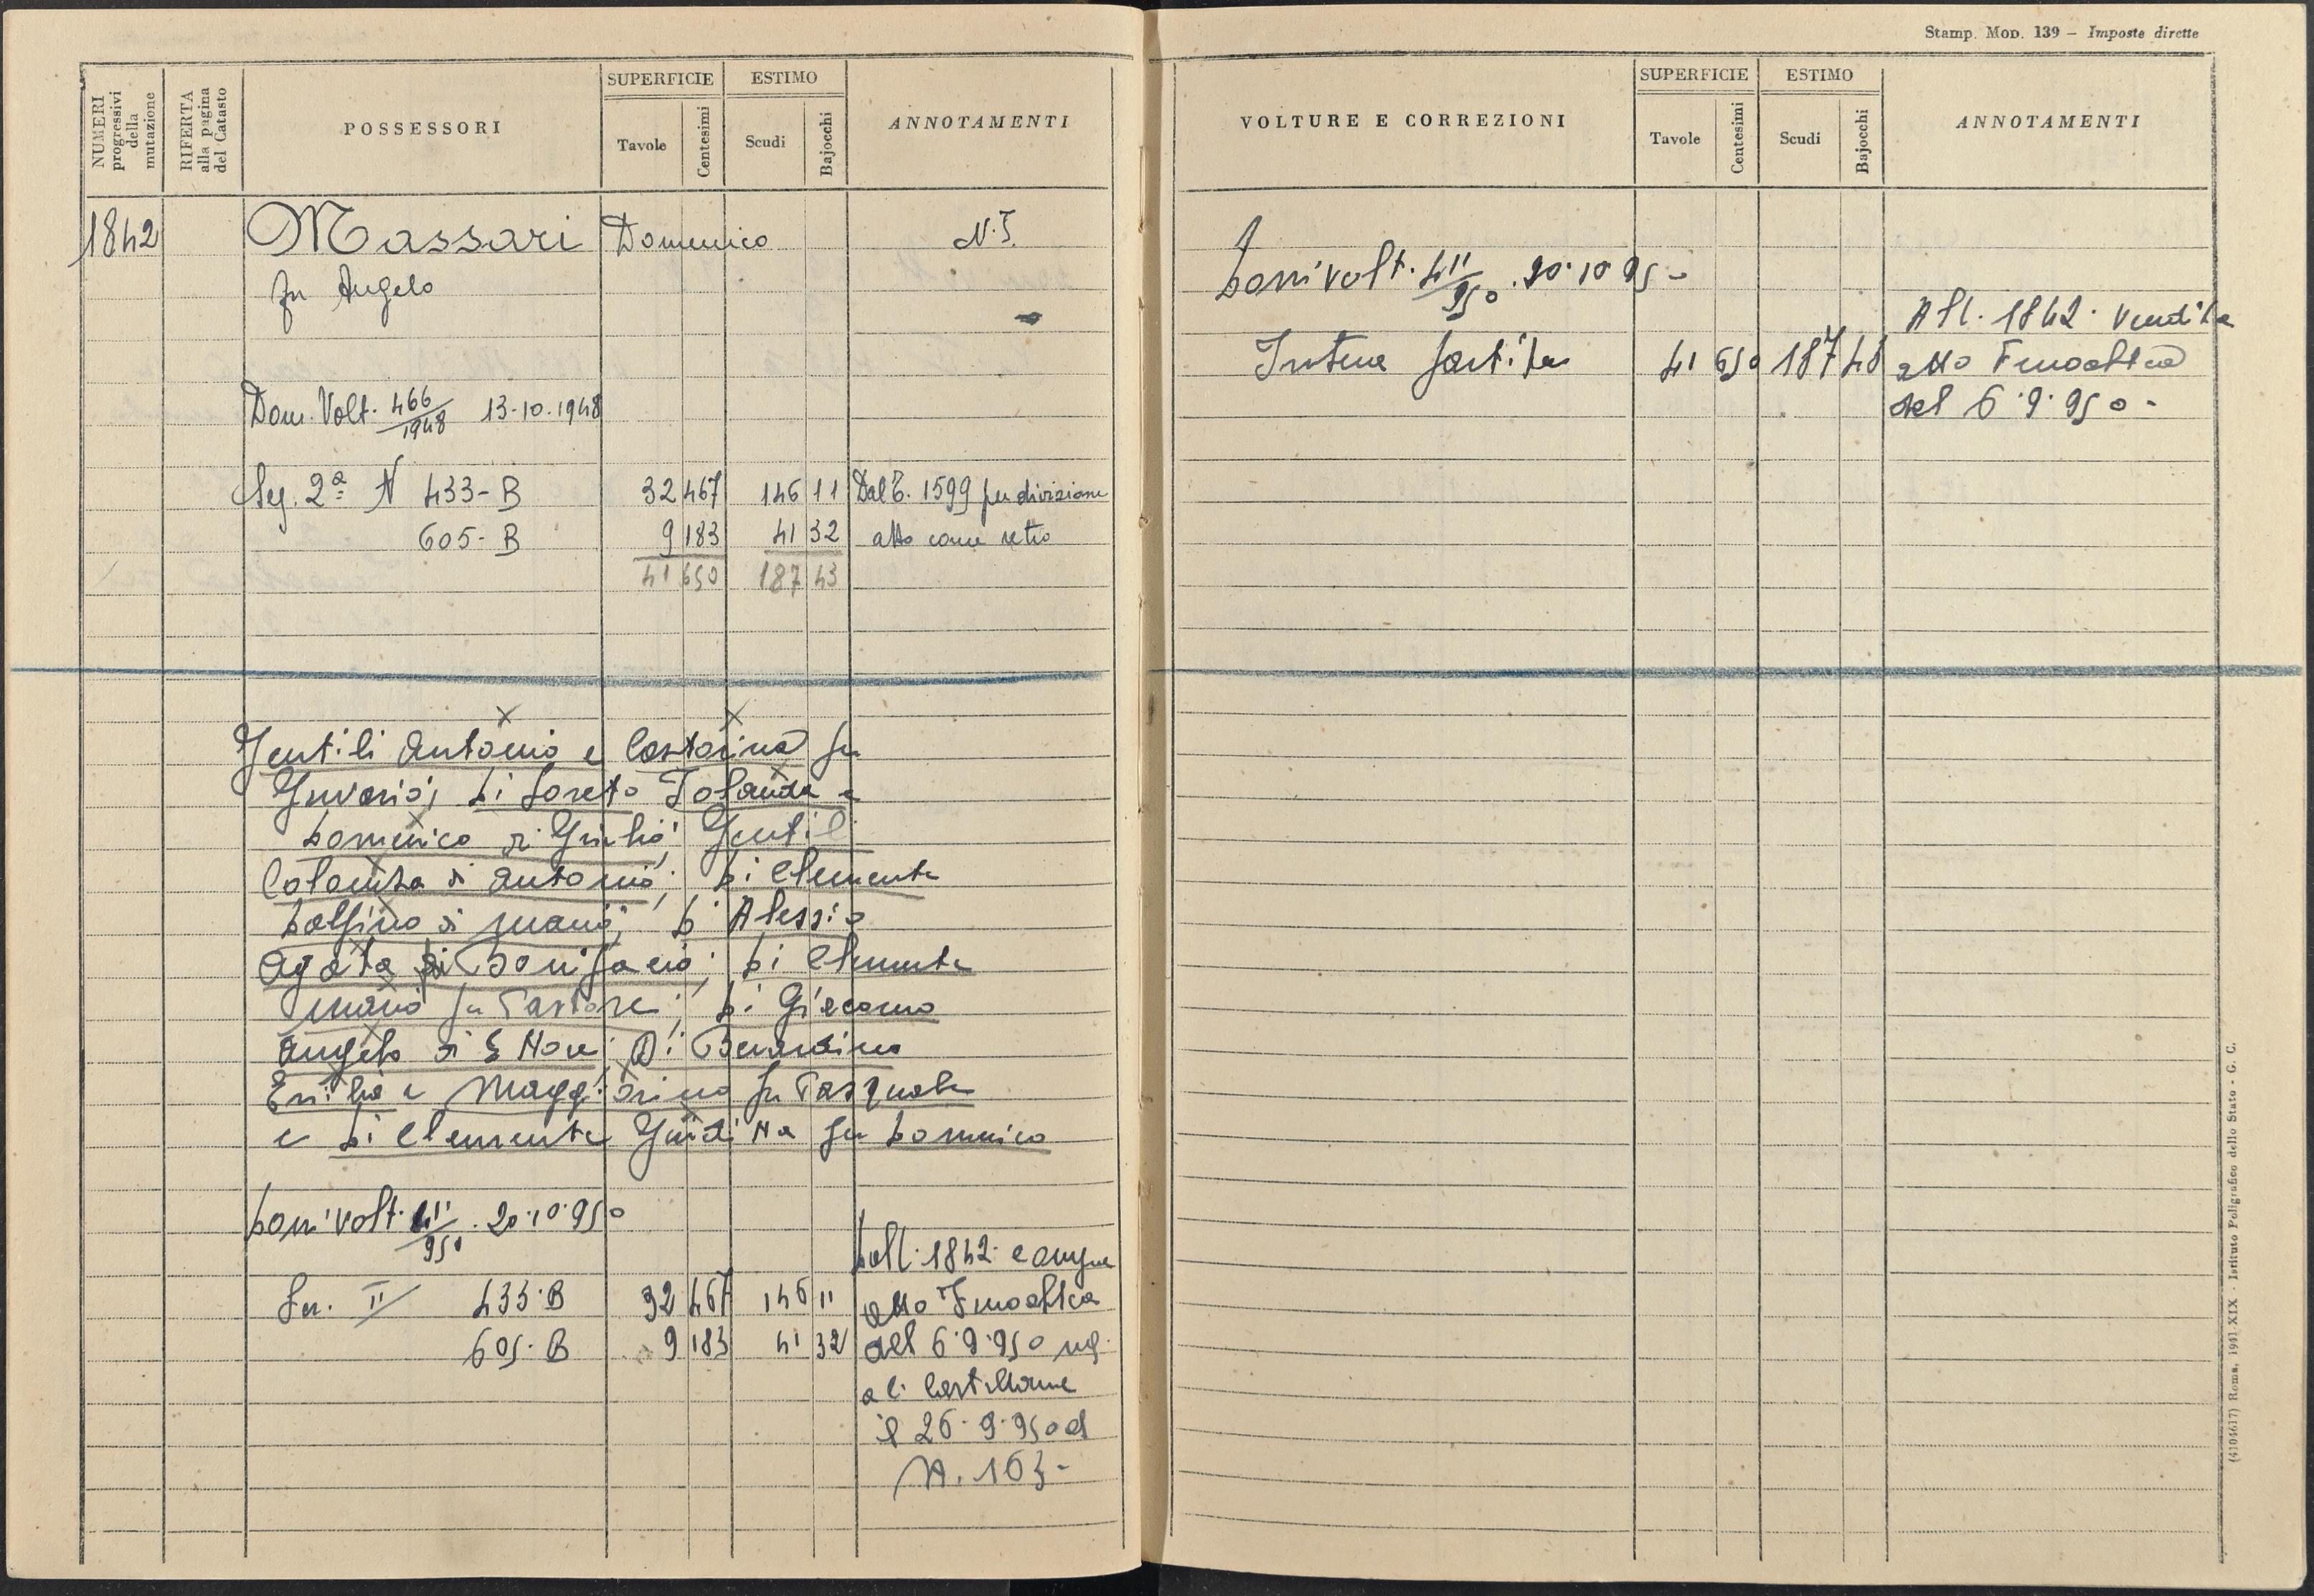 NUMERI progressivi della mutazione
RIFERTA alla pagina del Catasto
POSSESSORI
SUPERFICIE
Tavole
Centesimi
ESTIMO
Scudi
Bajocchi
ANNOTAMENTI
1842 Massari Domenico N.T.
fu Angelo
Dom. Volt. 466/1948 13-10-1948
Sez. 2ª N 433-B 32 467 146 11 Dal C. 1599 per divisione
605-B 9 183 41 32 atto come retro
41 650 187 43
Gentili Antonio e Costorina fu
di Loreto Jolanda e
Domenico di Giulio; Gentili
Colomba di Antonio; Di Clemente
Dolfino di Mario; Di Alessio
Agata di Bonifacio; Di Clemente
Mario fu Pastore; Di Giacomo
Angelo di; Di Berardino
Emilia e Maggiorino fu Pasquale
e Di Clemente Guidina fu Domenico
Dom. Volt. 411/950 . 20.10.950
Sez. II 433.B 32 467 146 11
605.B 9 183 41 32
Dall. 1842 e
atto
del 6.9.950 reg.
a
il 26.9.950 al
N. 163-
Stamp. Mod. 139 – Imposte dirette
VOLTURE E CORREZIONI
SUPERFICIE
Tavole
Centesimi
ESTIMO
Scudi
Bajocchi
ANNOTAMENTI
Dom. Volt. 411/950 . 20.10.95-
All. 1842. Vendita
Intera partita 41 650 187 43 atto
del 6.9.950-
(4104617) Roma, 1941-XIX - Istituto Poligrafico dello Stato - G. C.